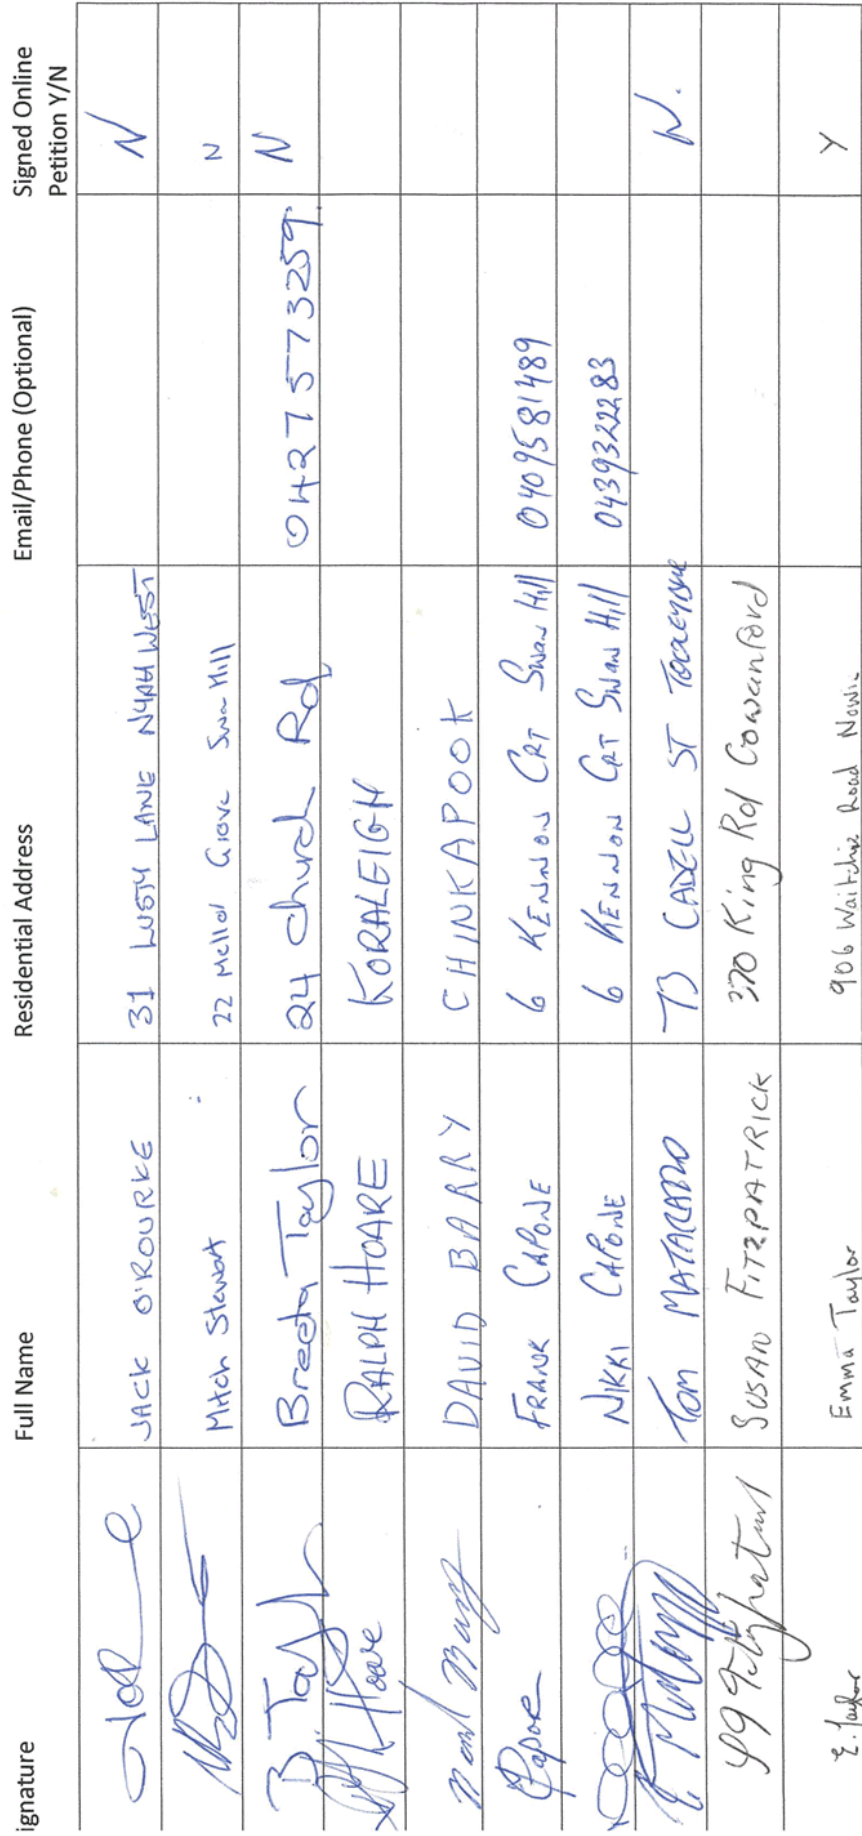 ignature Full Name Residential Address Email/Phone (Optional) Signed Online
Petition Y/N
JACK O'ROURKE 31 LUSTY LANE NYAH WEST N
Mitch Stewart 22 Mellor Grove Swan Hill N
B Taylor Breeda Taylor 24 Church Rd 0427573259. N
Hoare RALPH HOARE KORALEIGH
DAVID BARRY CHINKAPOOK
Capone FRANK CAPONE 6 KENNON CRT Swan Hill 0409581489
NIKKI CAPONE 6 KENNON CRT Swan Hill 0439322283
TOM 73 CADELL ST N.
Fitzpatrick SUSAN FITZPATRICK 370 King Rd Cowanford
E. Taylor Emma Taylor 906 Waitchie Road Nowie Y